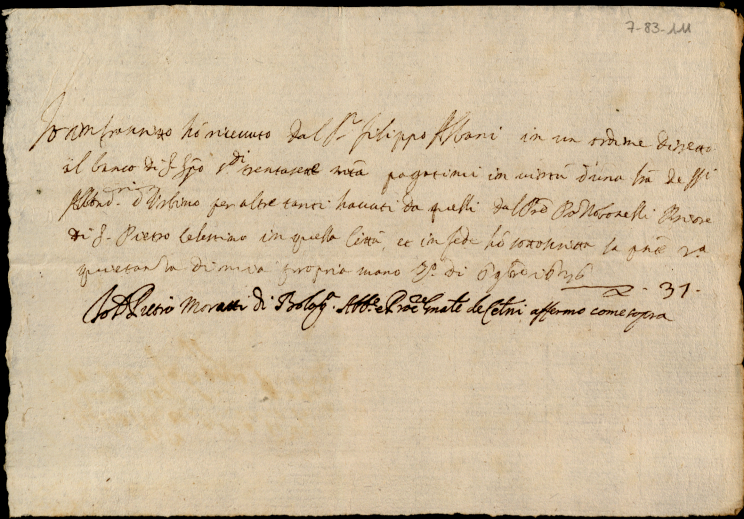 7-83-11
Io infrascritto hò riceuuto dal Sr Filippo Albani in un ordine diretto
al banco di S. Spo sdi trentasette mta pagatimi in virtù d'una lra de SSri
Albani d'Urbino per altretanti hauuti da quelli dal Pre Priore
di S. Pietro Celestino in quella Città, et in fede hò sottoscritta la pnte
quietanza di mia propria mano di 6
37.
Io D. Pietro Moratti di Bologa. Abbe e Proc. Gnale de Celni affermo come sopra